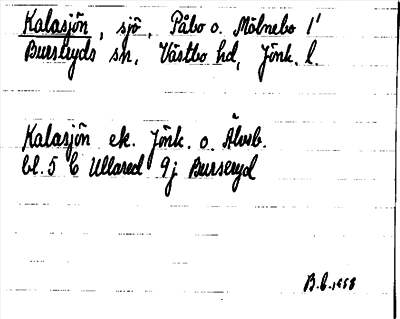 Kalasjön, sjö, Påbo o. Mölnebo 1'
Burseryds sn, Västbo hd, Jönk. l.
Kalasjön ek. Jönk. o. Älvsb.
bl. 5 C Ullared 9j Burseryd
B.b. 1958